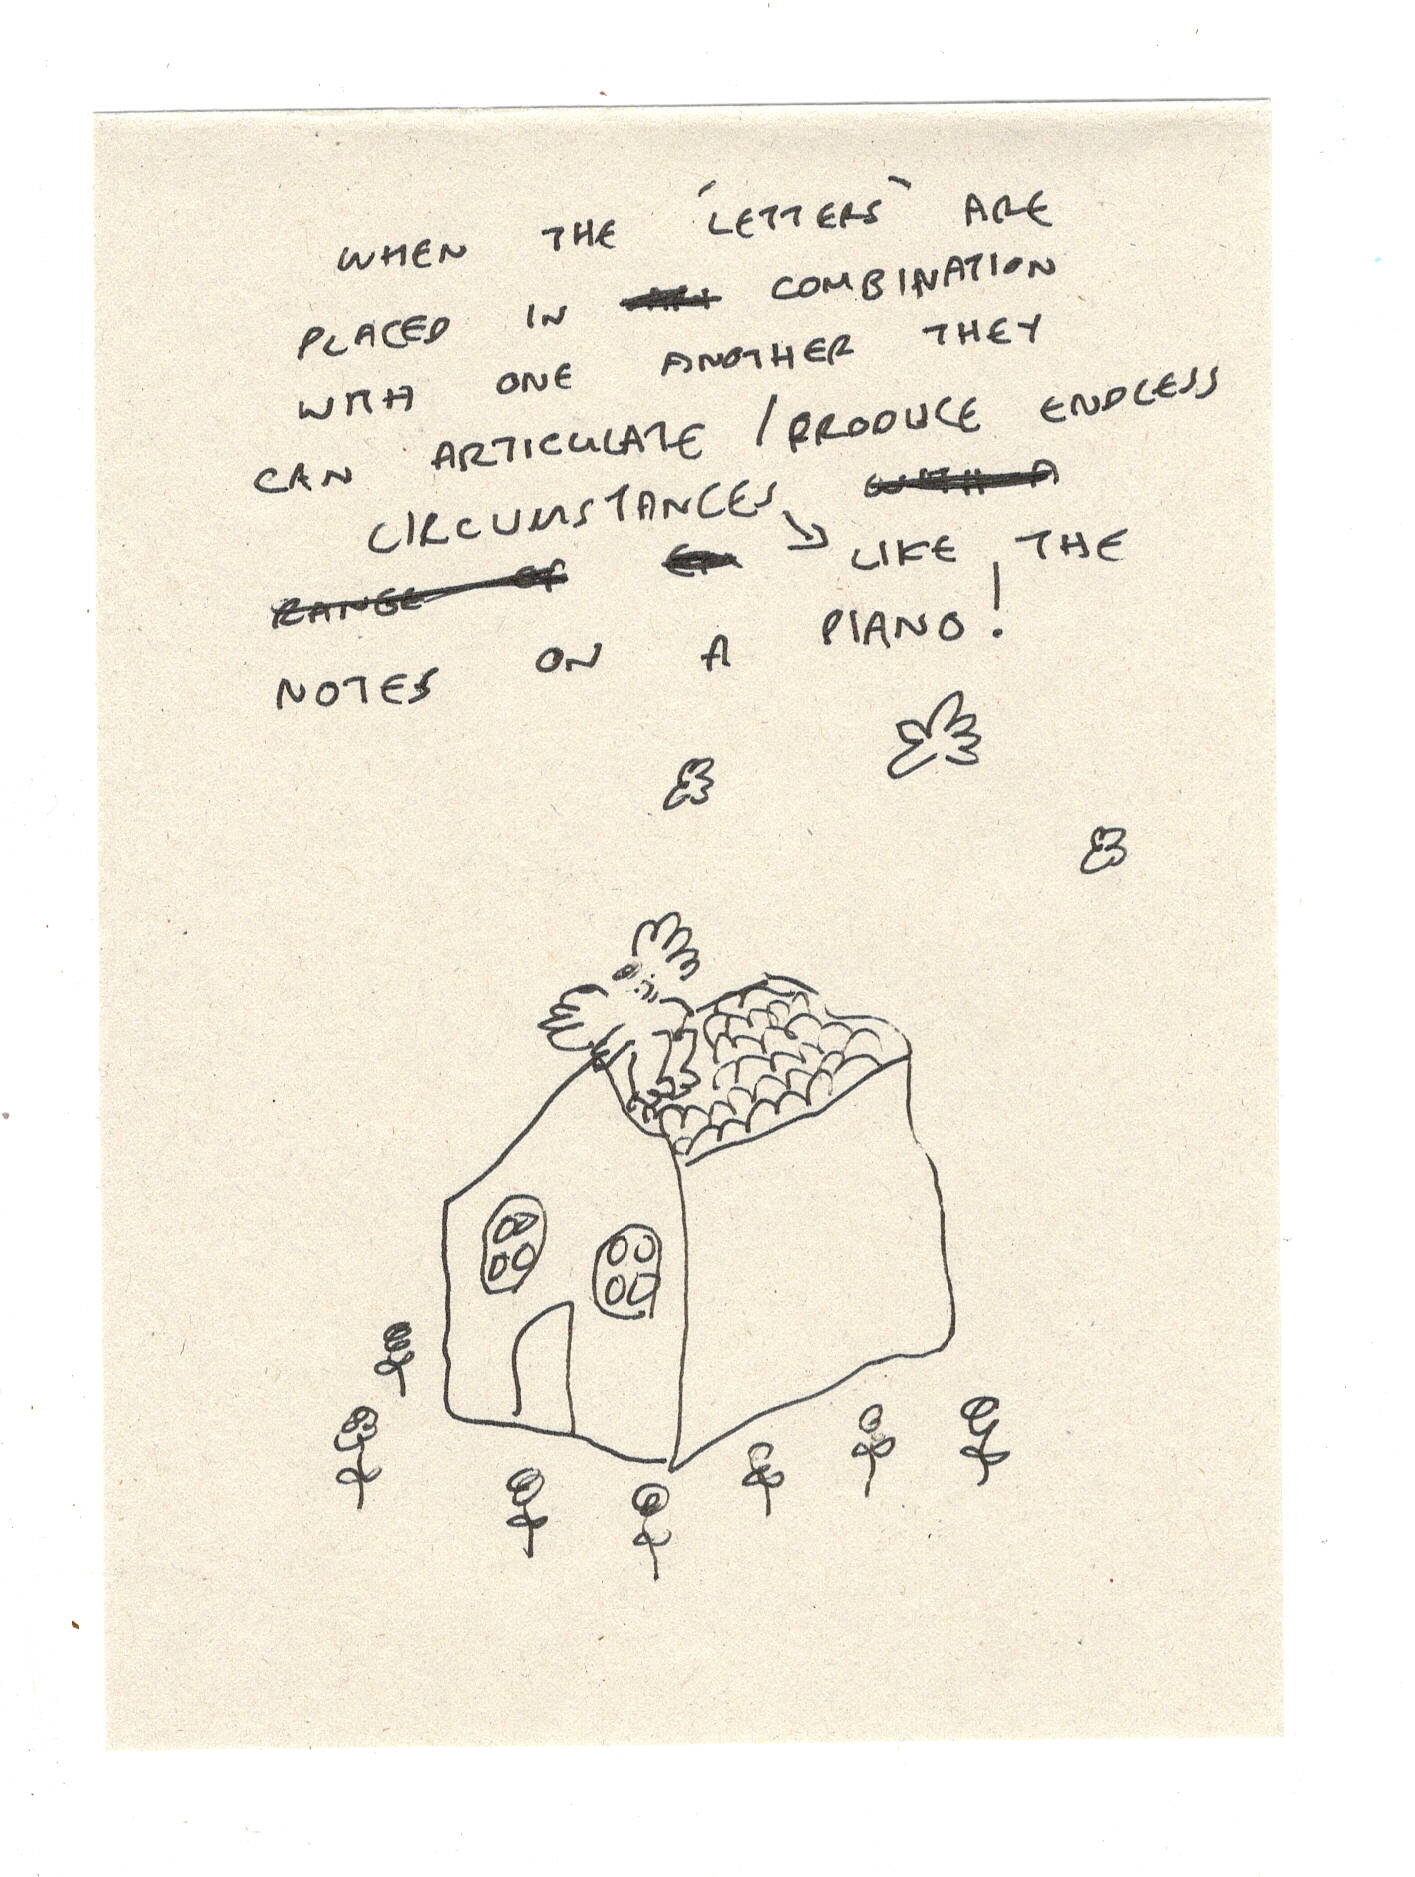 WHEN THE 'LETTERS' ARE
PLACED IN COMBINATION
WITH ONE ANOTHER THEY
CAN ARTICULATE / PRODUCE ENDLESS
CIRCUMSTANCES WITH A
RANGE OF → LIKE THE
NOTES ON A PIANO!